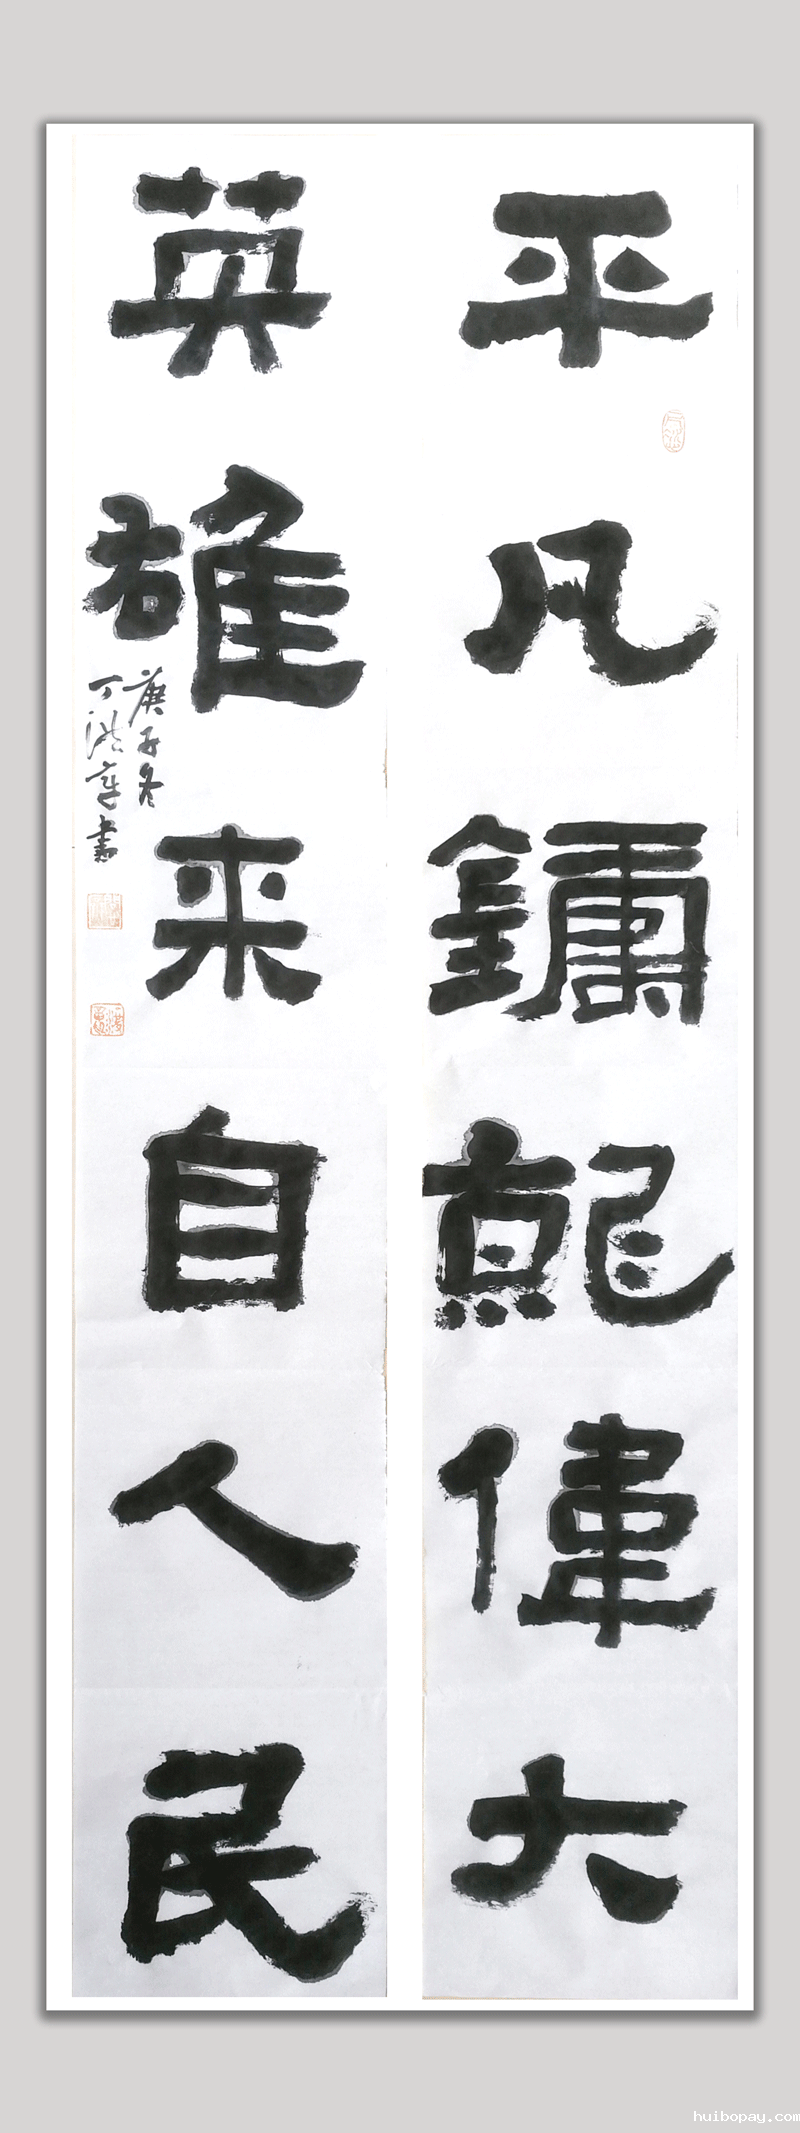 平凡鑄就偉大
英雄来自人民
庚子冬
丁洪章書
huibopay.com